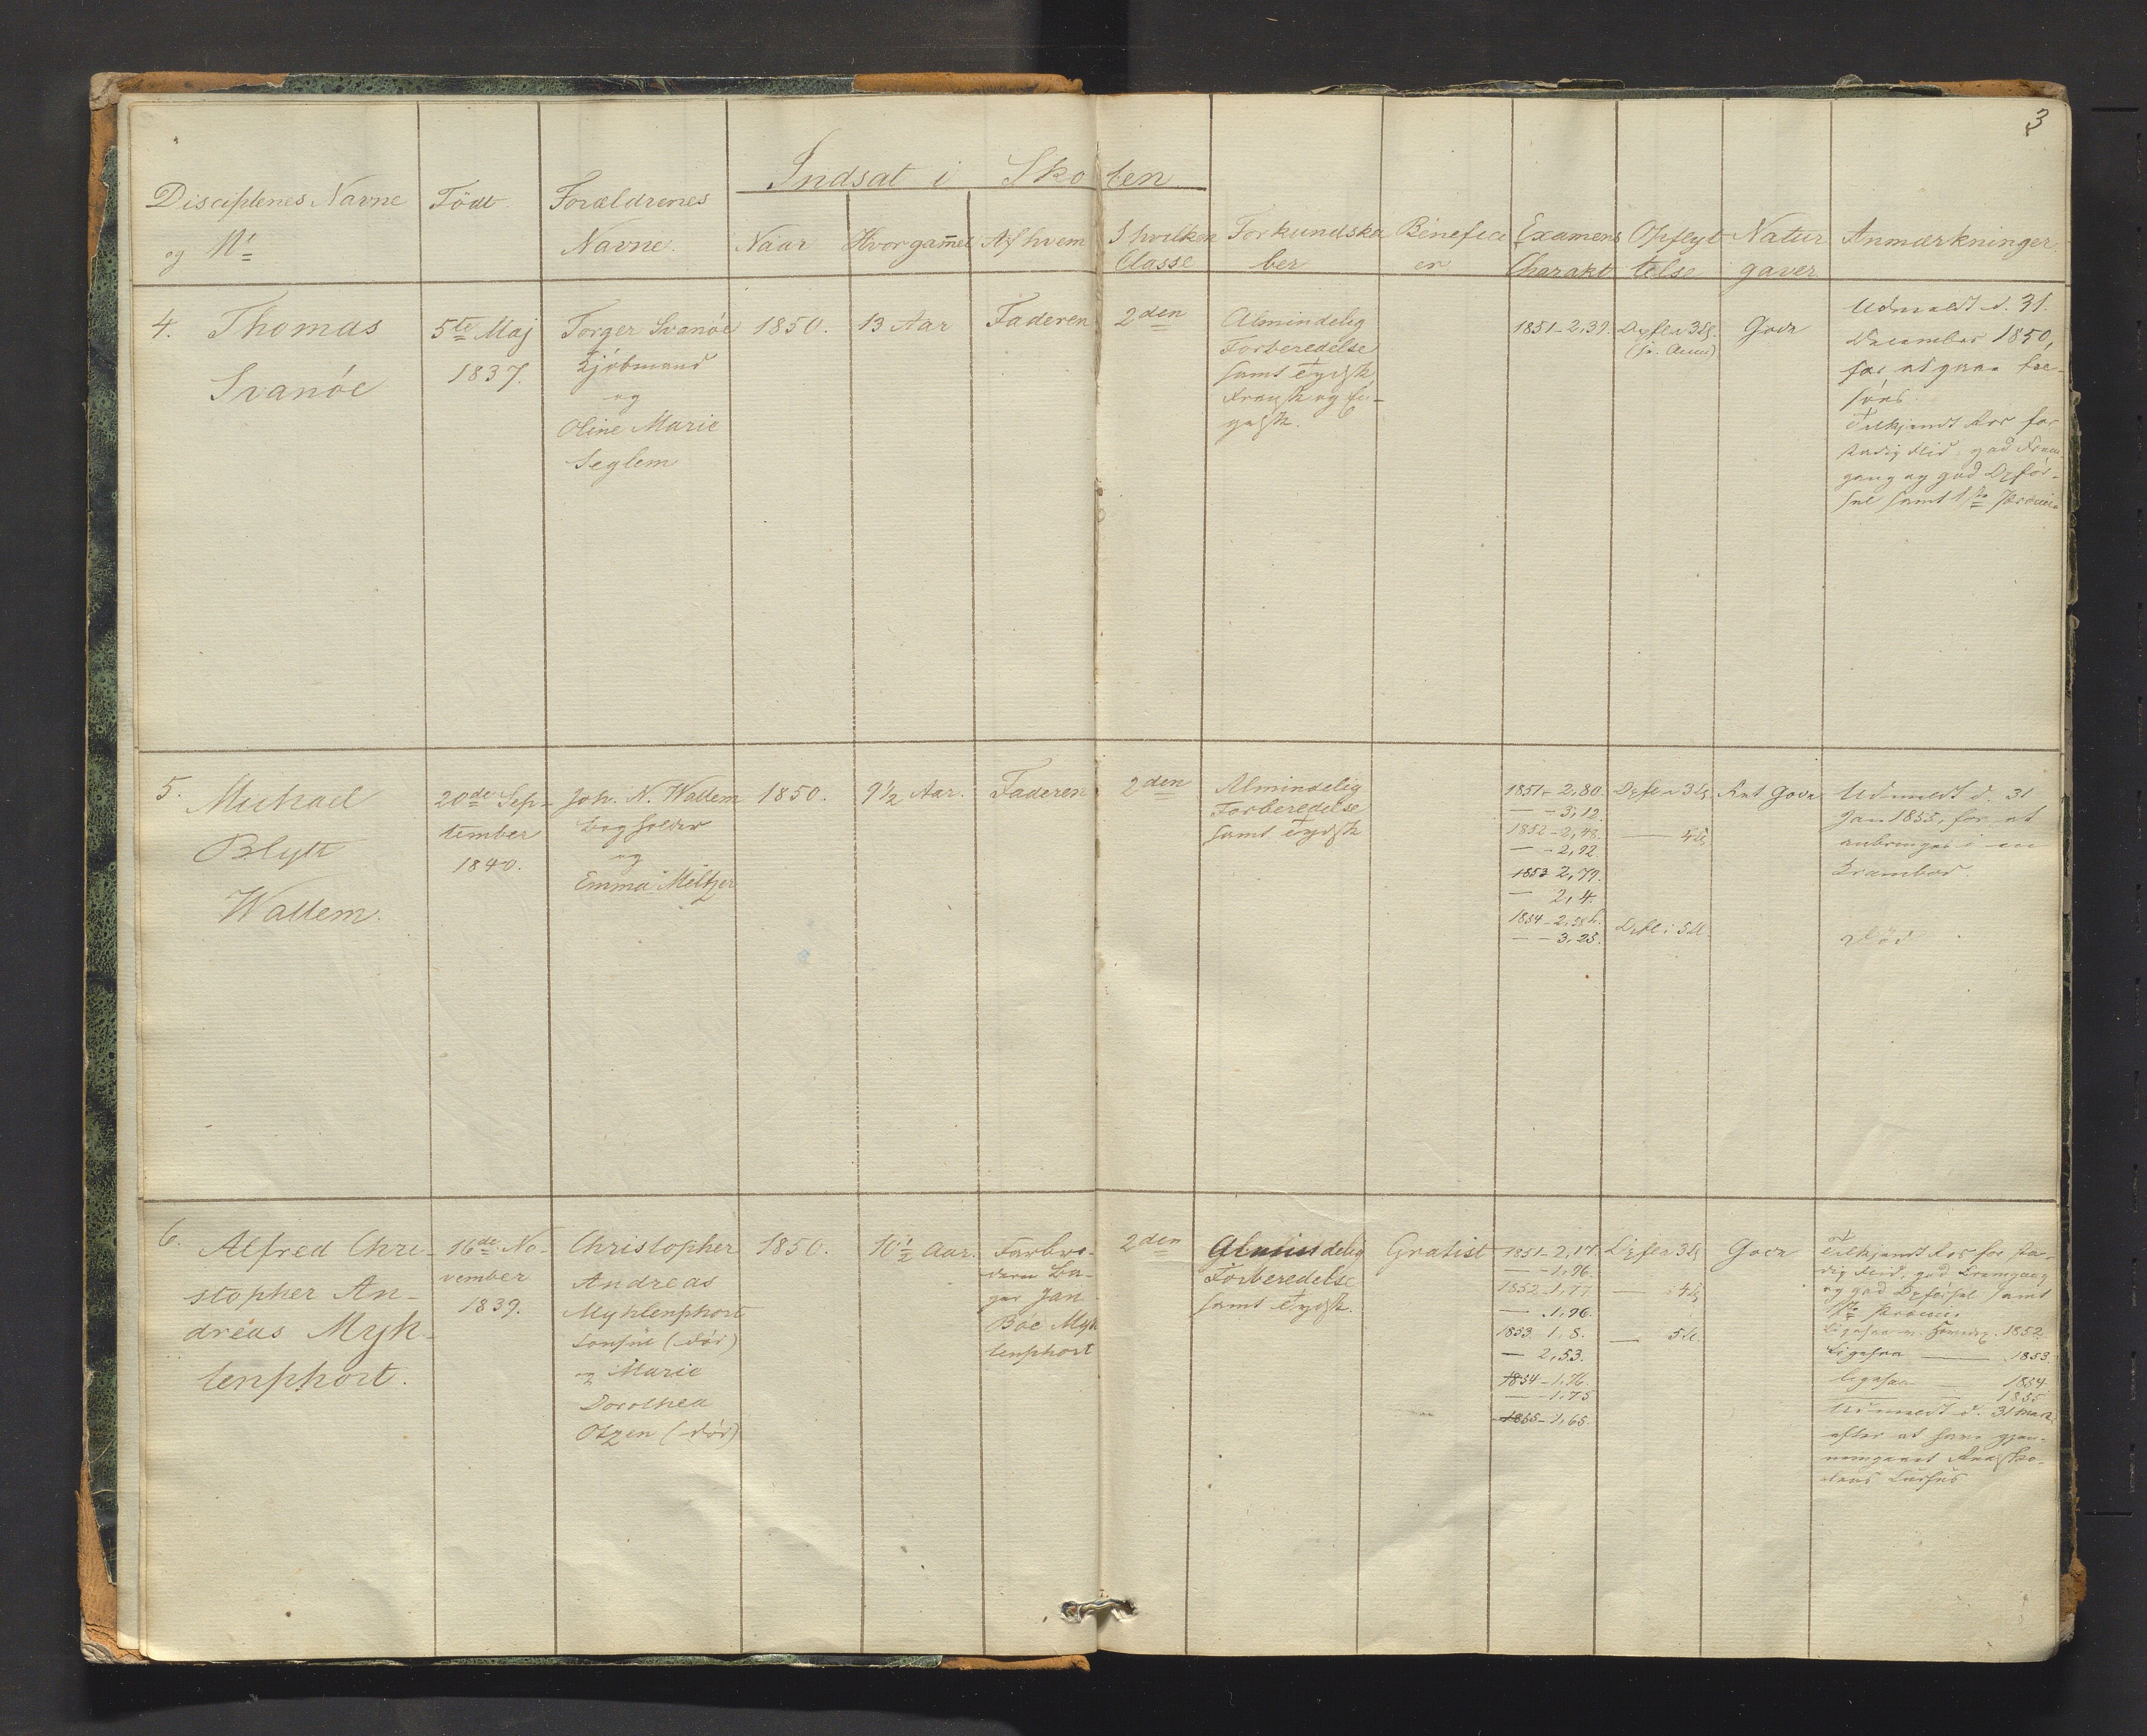 3
Indsat i Skolen
Disciplenes Navne
og Nr
Födt
Forældrenes
Navne.
Naar
Hvor gam̅el
Af hvem
I hvilken
Classe
Forkundska
ber
Benefici
er
Examens
Charakt
Opflyt
telse
Natur
gaver
Anmærkninger.
4. Thomas
Svanöe
5te Maj
1837.
Torger Svanöe
Kjöbmand
og
Oline Marie
Seglem
1850.
13 Aar
Faderen
2den
Almindelig
Forberedelse
samt Tydsk
Fransk og En-
gelsk.
1851-2,39.
Opfl. i 3 Cl.
Gode
Udmeldt d. 31.
December 1850,
for at gaae tse-
söes
Tilkjendt Ros for
stadig Flid, god Frem-
gang og god Opför-
sel samt 1ste Præmie
5. Michael
Blytt
Wallem.
20de Sep-
tember
1840.
Joh. N. Wallem
Bogholder
og
Emma Meltzer
1850.
9½ Aar.
Faderen
2den
Almindelig
Forberedelse
samt Tydsk
1851-2,80.
— -3,12.
1852-2,48.
— -2,92.
1853 2,79.
— 2,4.
1854-2,58
— -3,25.
Opfl. i 3 Cl.
— 4 Cl.
Opfl. i 5 Cl.
Ret Gode
Udmeldt d. 31
Jan 1855, for at
anbringes i en
Krambod.
Död
6. Alfred Chri-
stopher An-
dreas Myh-
lenphort.
16de No-
vember
1839.
Christopher
Andreas
Myhlenphort
Consul (död)
og Marie
Dorothea
Otzen (död)
1850.
10½ Aar.
Farbro-
deren Ba-
ger Jan
Böe Myh
lenphort
2den
Almindelig
Forberedelse
samt Tydsk.
Gratist
1851-2,17.
— -1,96.
1852-1,77
— 1,96.
1853. 1,8.
— 2,53.
1854-1,76.
— -1,75
1855-1,65.
Opfl. i 3 Cl.
— 4 Cl.
— 5 Cl.
Gode
Tilkjendt Ros for sta-
dig Flid, god Fremgang
og god Opförsel samt
1ste Præmie.
Ligesaa 1852.
Ligesaa — 1853.
Ligesaa 1854
— 1855
Udmeldt d. 31 Marts
efter at have gjen-
nemgaaet Realsko-
lens Cursus